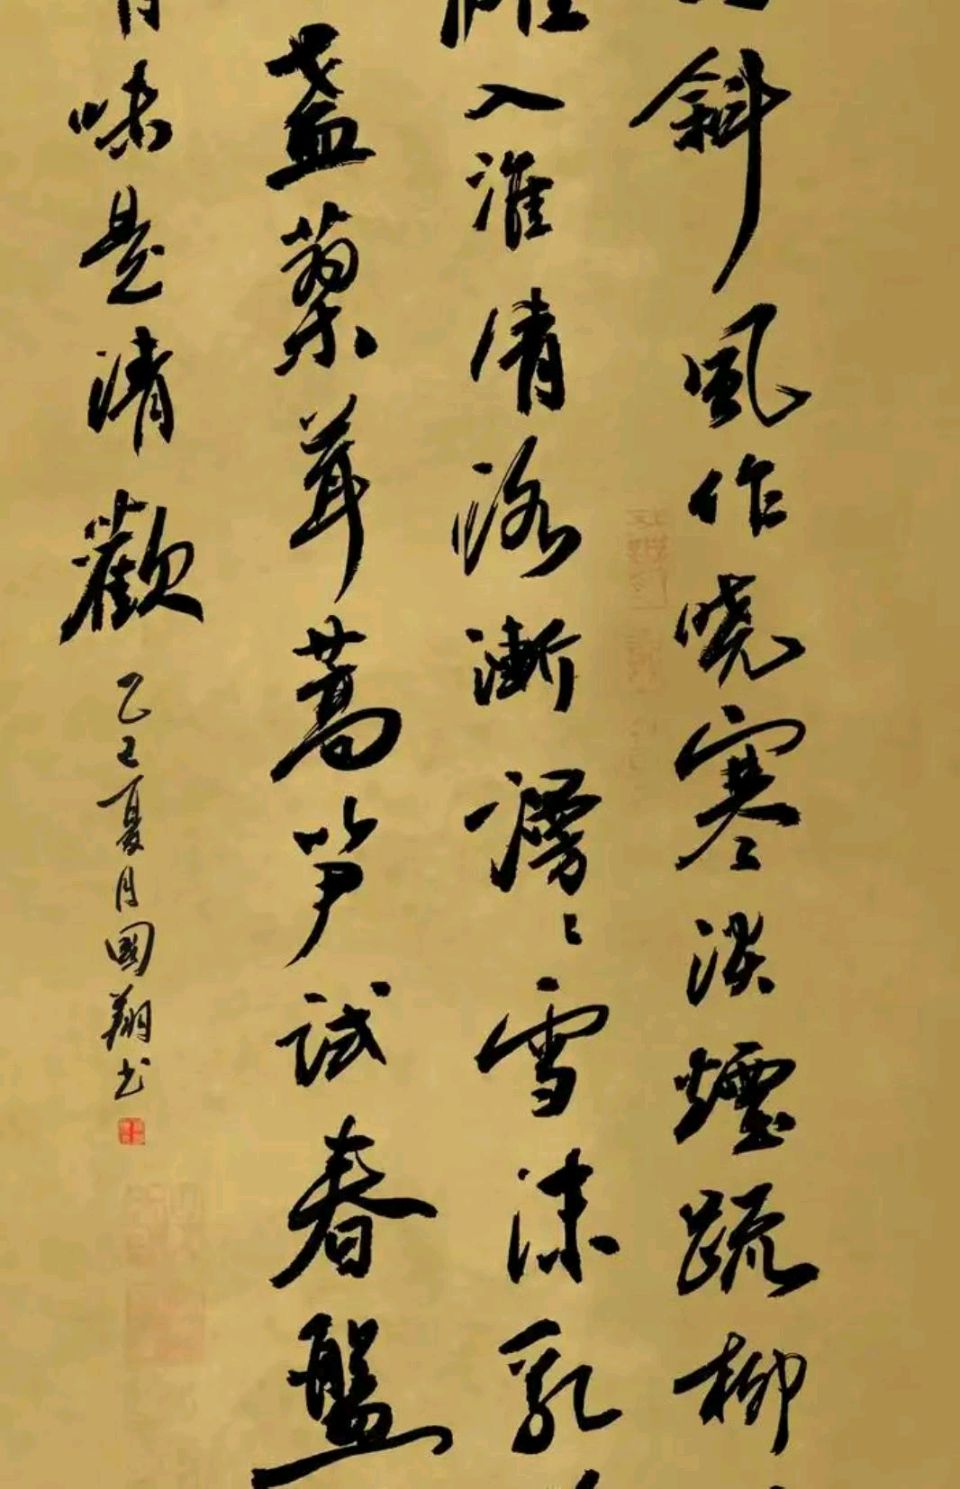 斜風作曉寒淡煙疏柳
入淮清洛漸漫〻雪沫乳
盞蓼茸蒿筍試春盤
味是清歡 乙巳夏月國翔书